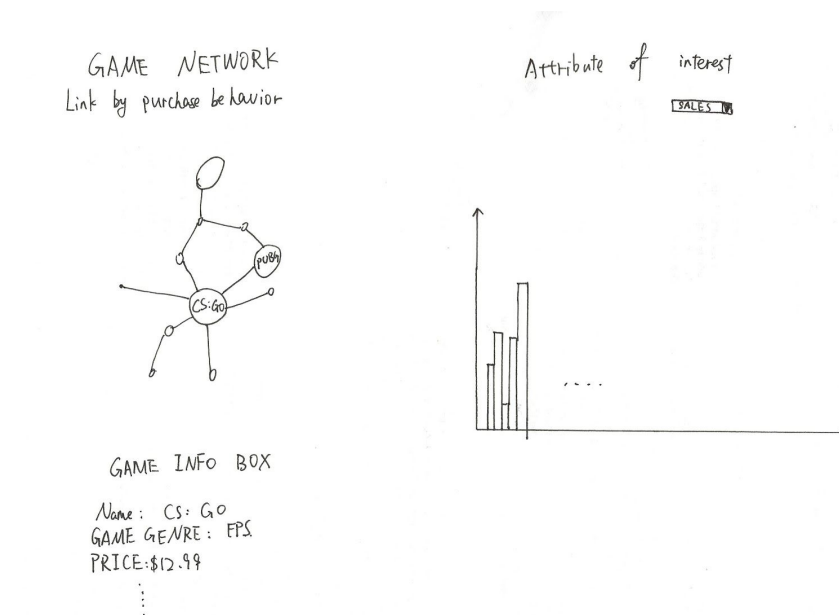 GAME NETWORK
Link by purchase behavior
PUBG
CS:GO
GAME INFO BOX
Name: CS: GO
GAME GENRE: FPS.
PRICE:$12.99
Attribute of interest
SALES